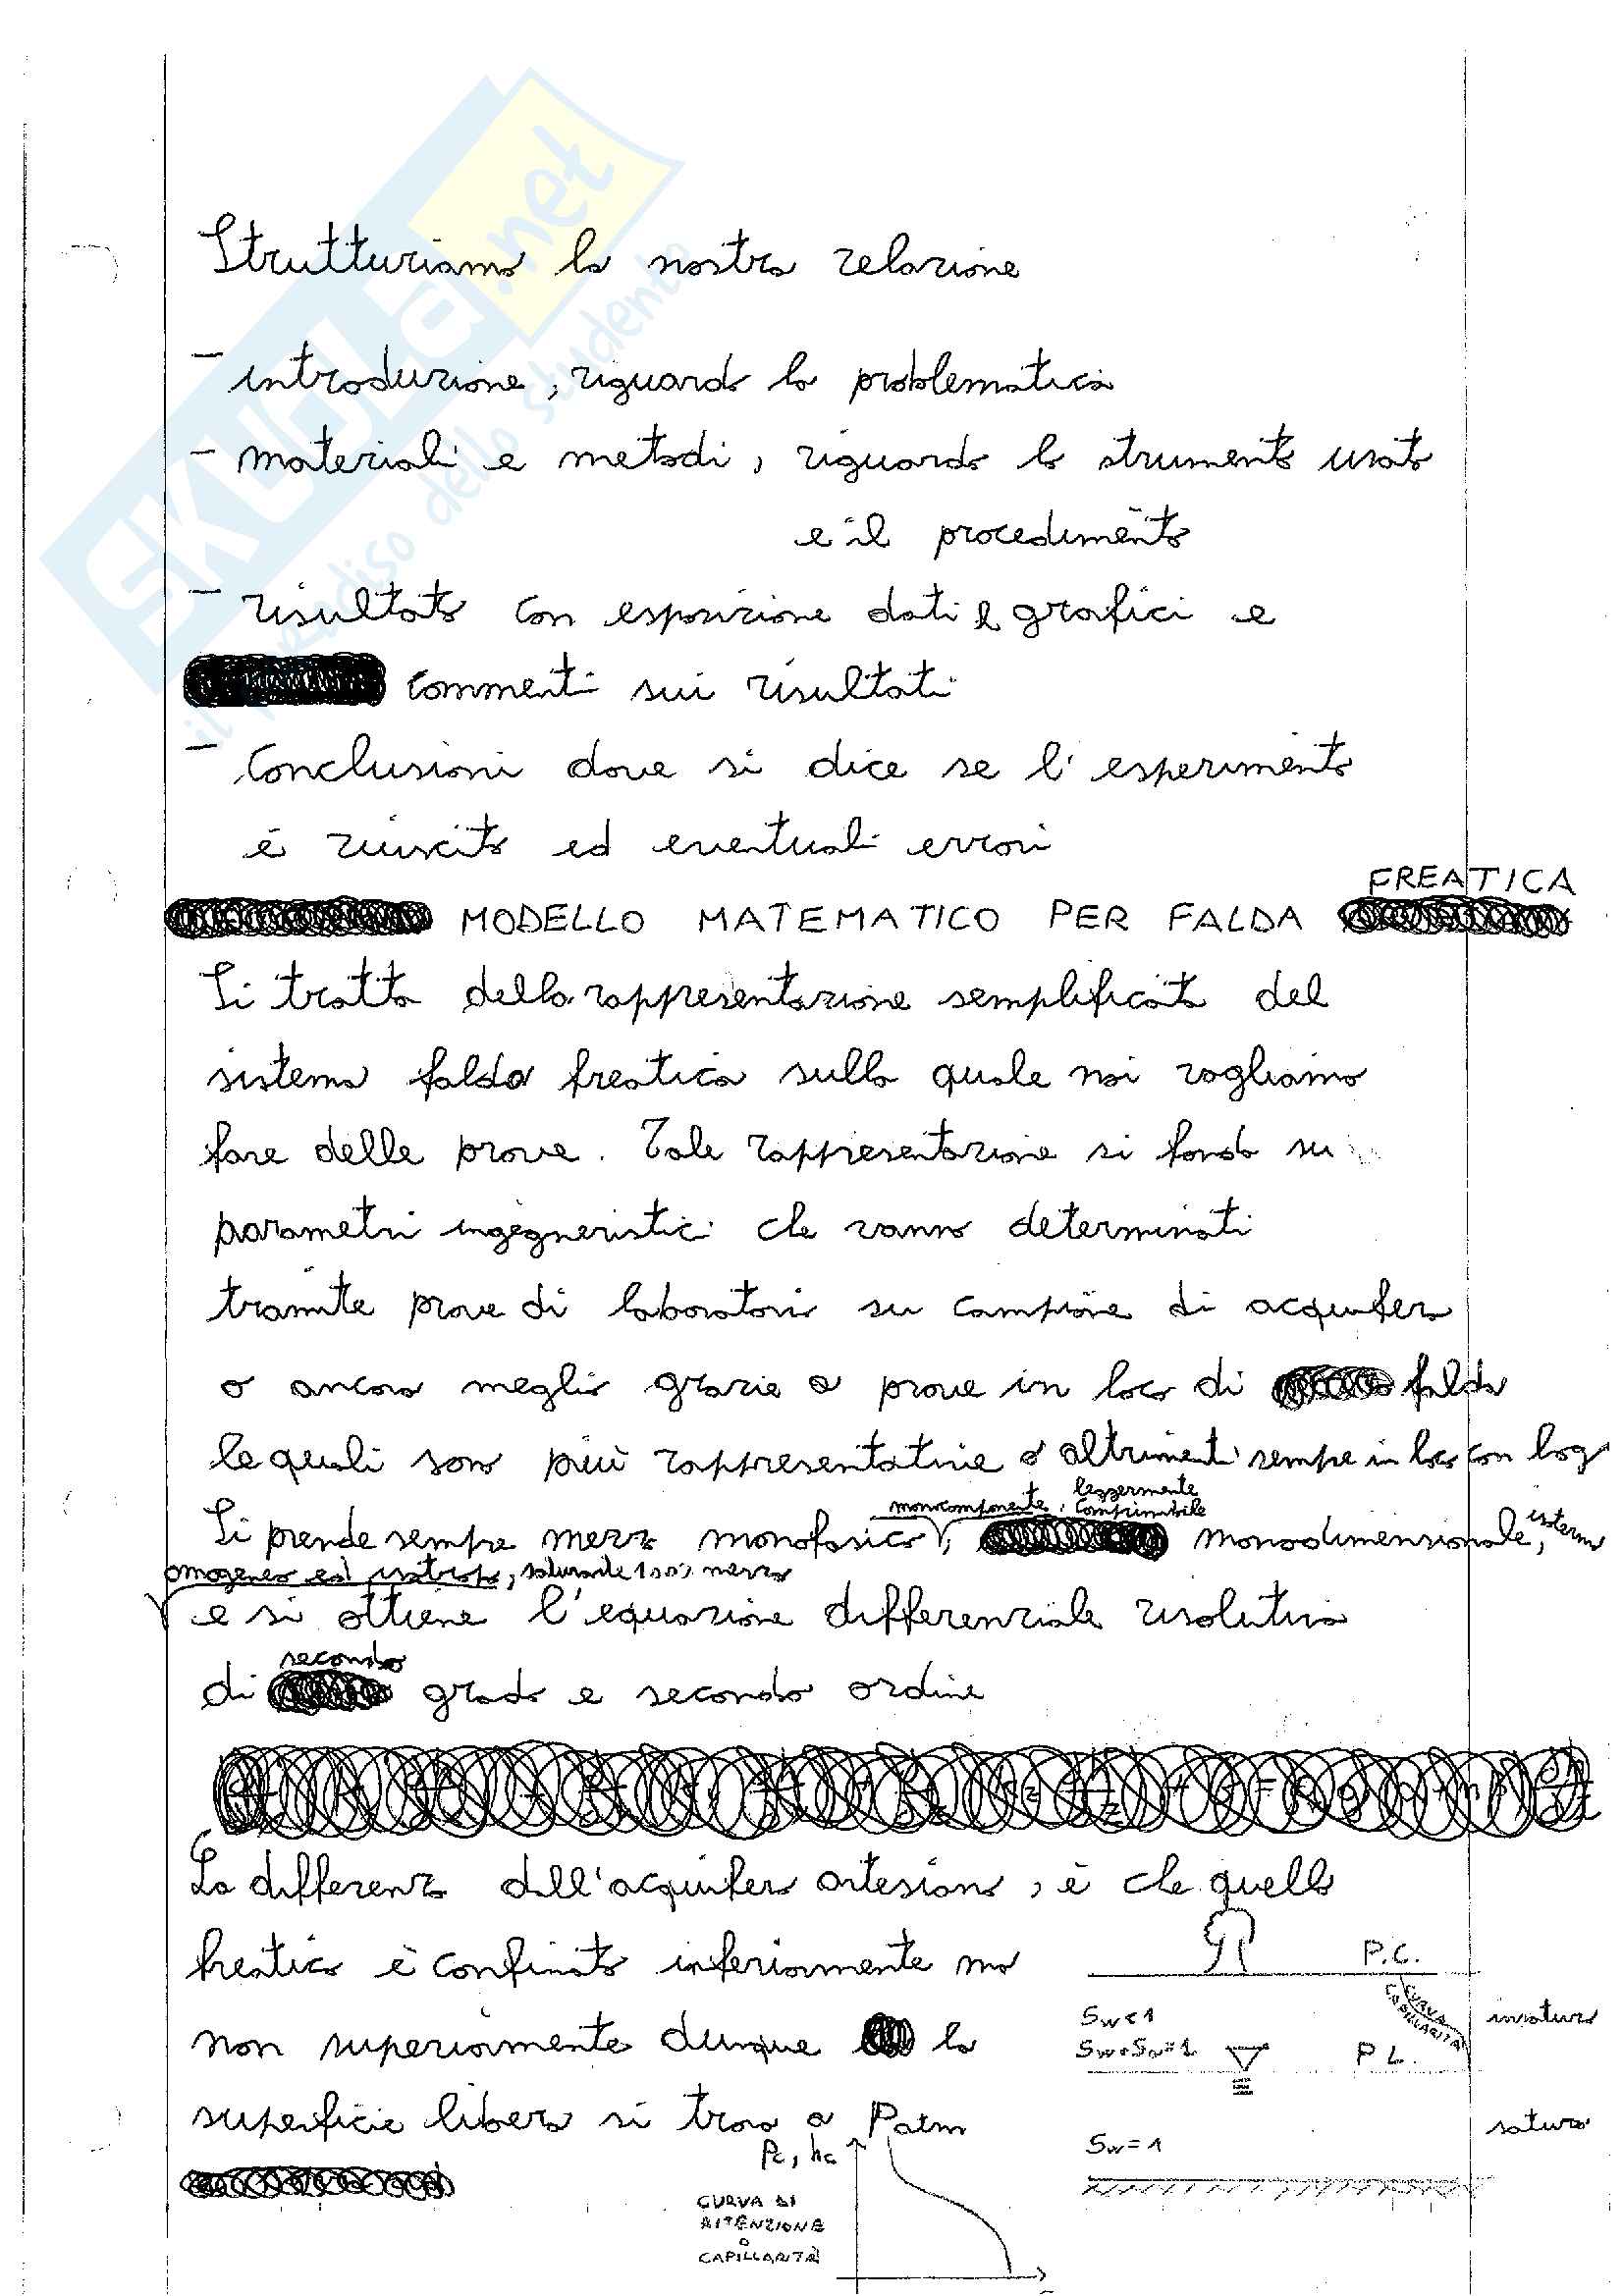 SKUOLA.net
il paradiso dello studente
Strutturiamo la nostra relazione
- introduzione, riguardo la problematica
- materiali e metodi, riguardo lo strumento usato
e il procedimento
- risultato con esposizione dati e grafici e
commenti sui risultati
- Conclusioni dove si dice se l'esperimento
è riuscito ed eventuali errori
MODELLO MATEMATICO PER FALDA FREATICA
Si tratta della rappresentazione semplificata del
sistema falda freatica sulla quale noi vogliamo
fare delle prove. Tale rappresentazione si fonda su
parametri ingegneristici che vanno determinati
tramite prove di laboratorio su campione di acquifero
o ancora meglio grazie a prove in loco di falda
le quali sono più rappresentative o altrimenti sempre in loco con log
monocomponente, leggermente comprimibile
Si prende sempre mezzo monofasico, monodimensionale, isotermo
omogeneo ed isotropo, saturante 100% mezzo
e si ottiene l'equazione differenziale risolutiva
di secondo grado e secondo ordine
La differenza dall'acquifero artesiano, è che quello
freatico è confinato inferiormente ma
non superiormente dunque la
superficie libera si trova a Patm
P.C.
CURVA CAPILLARITÀ
Sw<1
insaturo
Sw+Sa=1
P L.
saturo
Sw=1
Pc, hc
CURVA DI
RITENZIONE
O
CAPILLARITÀ